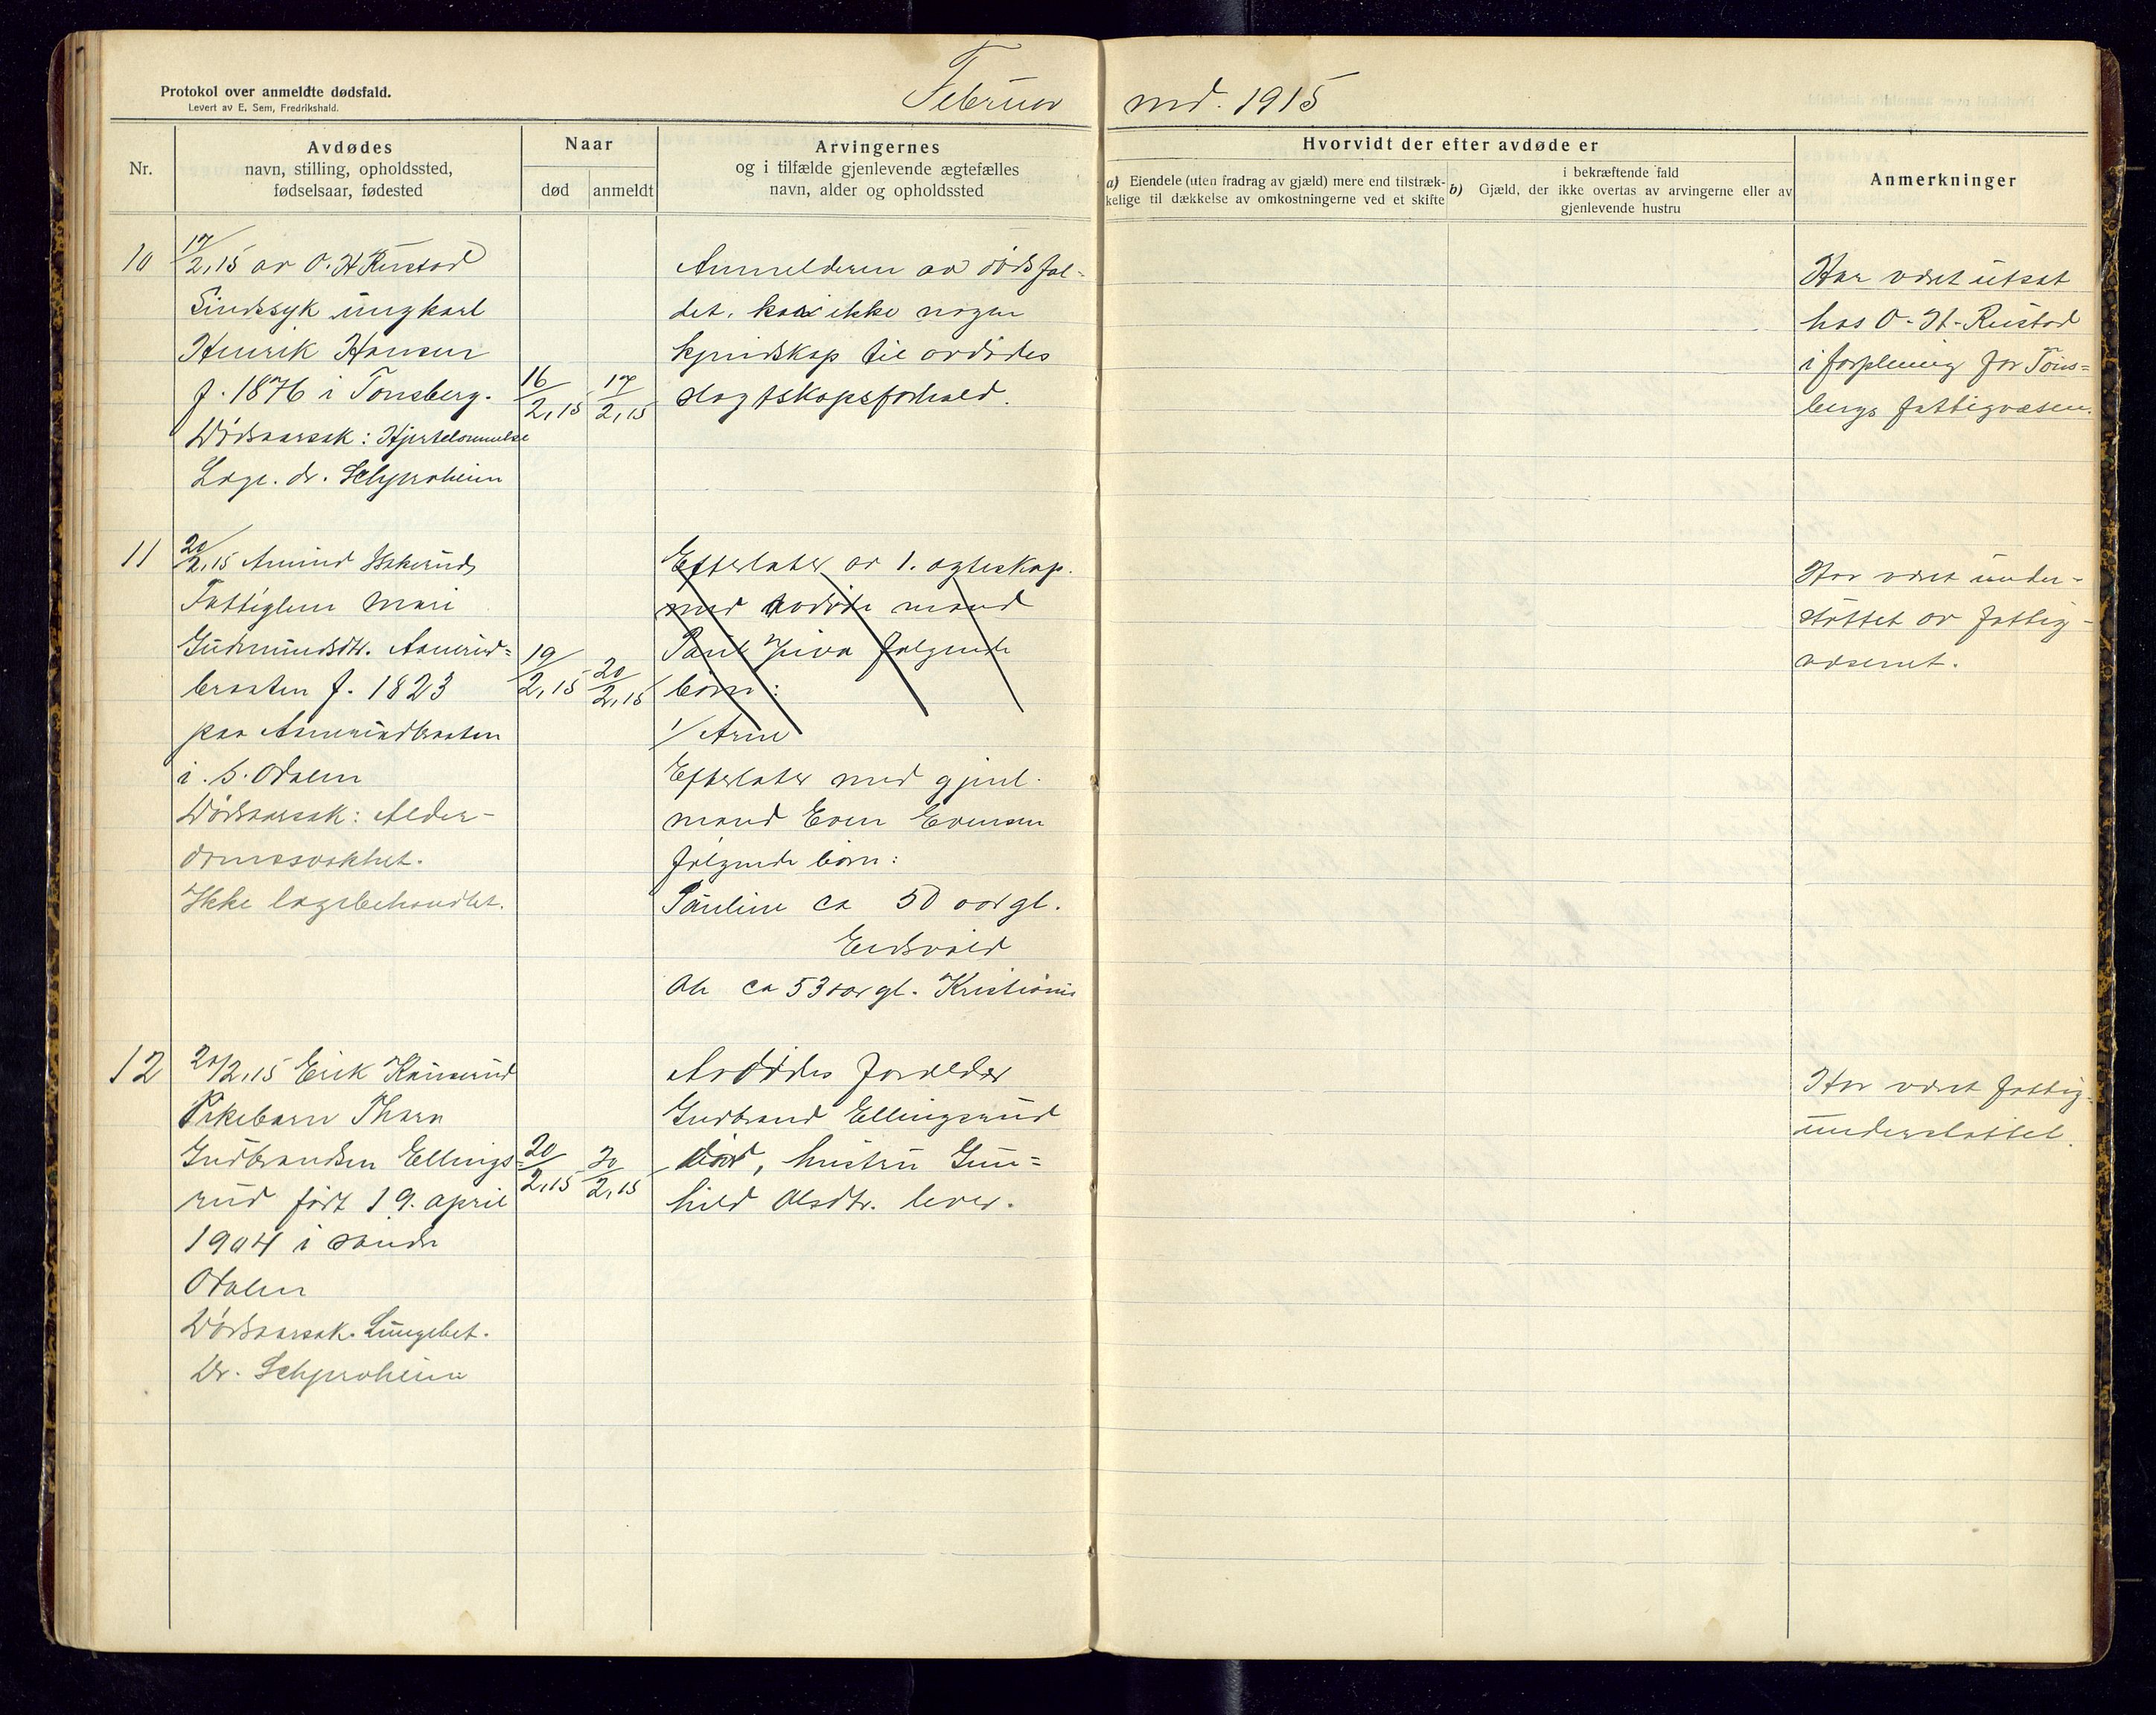 Februar md. 1915
Protokol over anmeldte dødsfald.
Levert av E. Sem, Fredrikshald.
Nr.
Avdødes
navn, stilling, opholdssted,
fødselsaar, fødested
Naar
død
anmeldt
Arvingernes
og i tilfælde gjenlevende ægtefælles
navn, alder og opholdssted
Hvorvidt der efter avdøde er
a) Eiendele (uten fradrag av gjæld) mere end tilstræk-
kelige til dækkelse av omkostningerne ved et skifte
i bekræftende fald
b) Gjæld, der ikke overtas av arvingerne eller av
gjenlevende hustru
Anmerkninger
10
17/2,15 av O. H Rustad
Sindssyk ungkarl
Henrik Hansen
f. 1876 i Tønsberg.
Dødsaarsak: Hjertelammelse
Læge. dr.
16/2,15
17/2,15
Anmelderen av dødsfal-
det, har ikke nogen
kjendskap til avdødes
slægtskapsforhold.
Har været utsat
hos O. H. Rustad
i forpleining for Tøns=
bergs fattigvæsen.
11
20/2,15 Amund
Fattiglem Mari
Gudmundsdtr. Aamrud=
braaten f. 1823
paa Aamrudbraaten
i S. Odalen
Dødsaarsak: Alder-
domssvakhet.
Ikke lægebehandlet.
19/2,15
20/2,15
Efterlater av 1. ægteskap.
med avdøde mand
Paul følgende
børn:
1/ Arne
Efterlater med gjenl.
mand Even Evensen
følgende børn:
Pauline ca 50 aar gl.
Eidsvold
Ole ca 53 aar gl. Kristiania
Har været under-
støttet av fattig-
væsenet.
12
20/2,15 Erik Kauserud
Pikebarn Thora
Gudbrandsen Ellings=
rud født 19. april
1904 i søndre
Odalen
Dødsaarsak. Lungebet.
Dr.
20/2,15
20/2,15
Avdødes forælder
Gudbrand Ellingsrud
død, hustru Gun=
hild Olsdtr. lever.
Har været fattig-
understøttet.